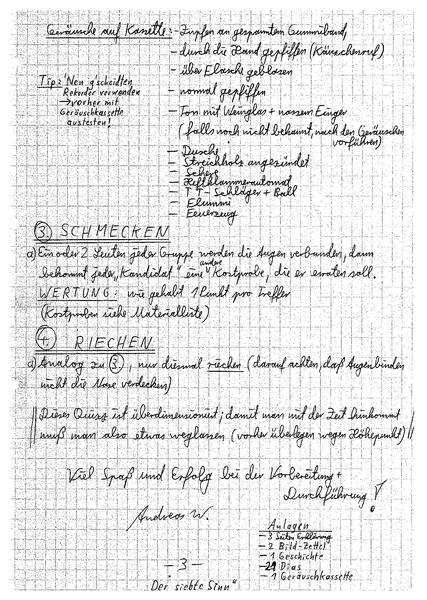 Geräusche auf Kassette: - Zupfen an gespanntem Gummiband
- durch die Hand gepfiffen (Käuzchenruf)
- über Flasche geblasen
Tip: 'Nen gscheidten
Rekorder verwenden
→ vorher mit
Geräuschkassette
austesten!
- normal gepfiffen
- Ton mit Weinglas + nassem Finger
(falls noch nicht bekannt, nach den Geräuschen
vorführen)
- Dusche
- Streichholz angezündet
- Schere
- Heftklammerautomat
- TT-Schläger + Ball
- Flummi
- Feuerzeug
③ SCHMECKEN
a) Ein oder 2 Leuten jeder Gruppe werden die Augen verbunden, dann
bekommt jeder "Kandidat" eine andere Kostprobe, die er erraten soll.
WERTUNG: wie gehabt 1 Punkt pro Treffer
(Kostproben siehe Materialliste)
④ RIECHEN
a) Analog zu ③, nur diesmal riechen (darauf achten, daß Augenbinden
nicht die Nase verdecken)
Dieses Quiz ist überdimensioniert; damit man mit der Zeit hinkommt
muß man also etwas weglassen (vorher überlegen wegen Höhepunkt)
Viel Spaß und Erfolg bei der Vorbereitung +
Durchführung!
Andreas W.
Anlagen
- 3 Seiten Erklärung
- 2 Bild-Zettel
- 1 Geschichte
- Dias
- 1 Geräuschkassette
- 3 -
"Der siebte Sinn"